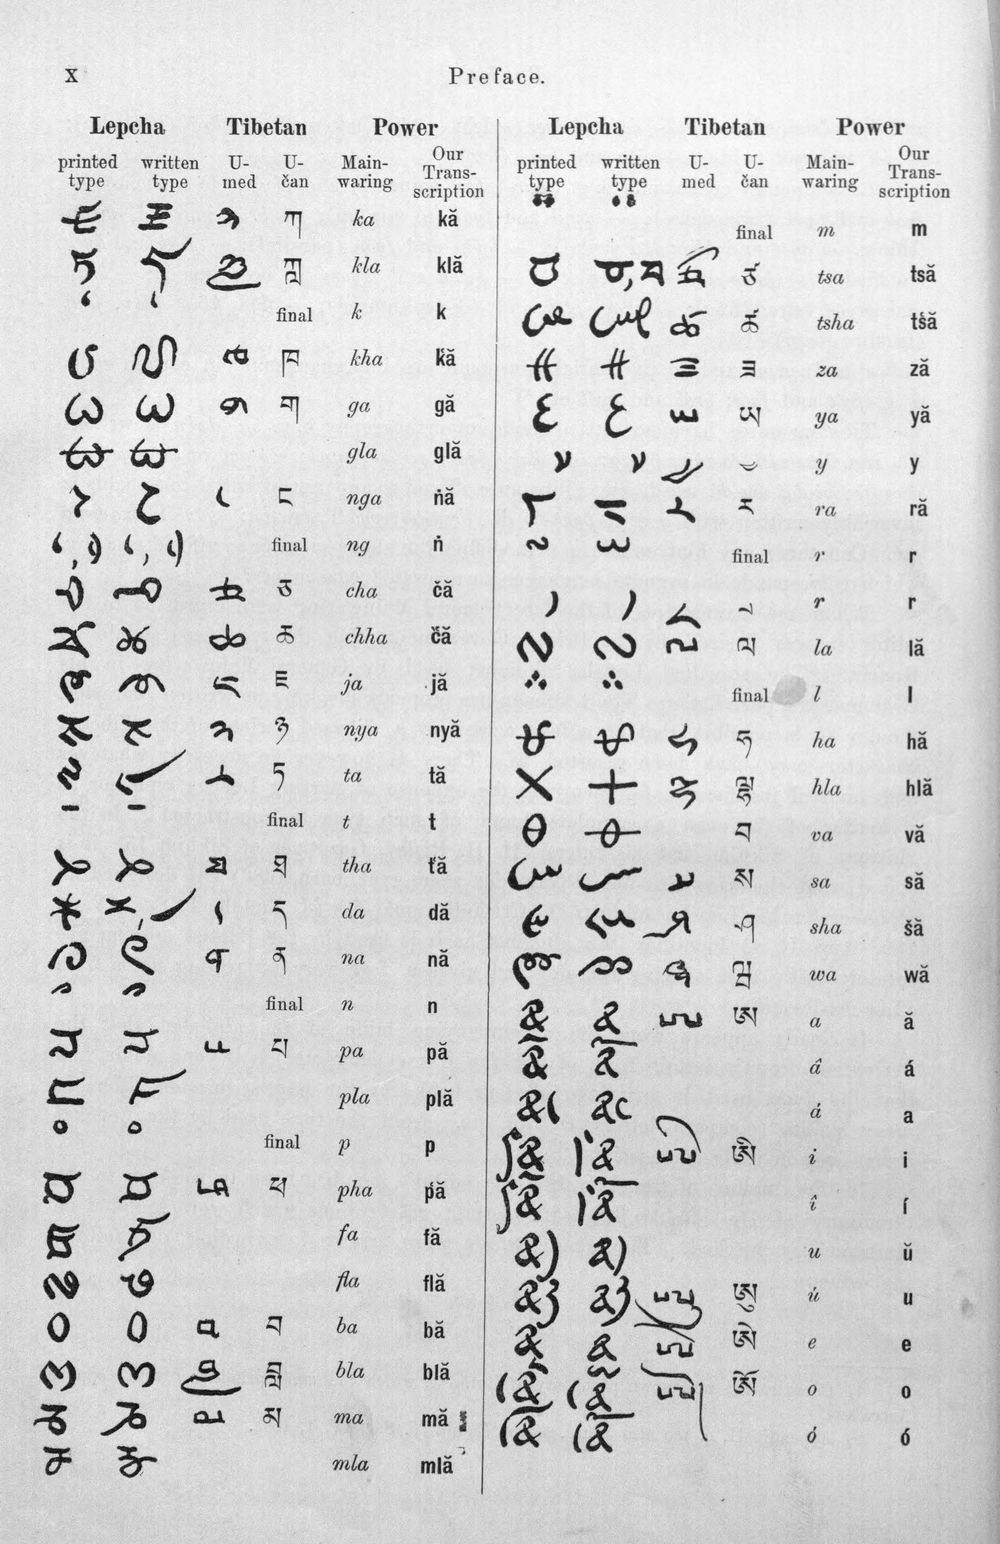 X
Preface.
Lepcha Tibetan Power
printed type written type U-med U-čan Main-waring Our Trans-scription
ᰀ ᰀ ཀ ཀ ka kă
ᰁ ᰁ ཀླ ཀླ kla klă
final k k
ᰂ ᰂ ཁ ཁ kha k̔ă
ᰃ ᰃ ག ག ga gă
ᰄ ᰄ gla glă
ᰅ ᰅ ང ང nga ṅă
final ng ṅ
ᰆ ᰆ ཅ ཅ cha čă
ᰇ ᰇ ཆ ཆ chha č̔ă
ᰈ ᰈ ཇ ཇ ja jă
ᰉ ᰉ ཉ ཉ nya nyă
ᰊ ᰊ ཏ ཏ ta tă
final t t
ᰋ ᰋ ཐ ཐ tha t̔ă
ᰌ ᰌ ད ད da dă
ᰍ ᰍ ན ན na nă
final n n
ᰎ ᰎ པ པ pa pă
ᰏ ᰏ pla plă
final p p
ᰐ ᰐ ཕ ཕ pha p̔ă
ᰑ ᰑ fa fă
ᰒ ᰒ fla flă
ᰓ ᰓ བ བ ba bă
ᰔ ᰔ བླ བླ bla blă
ᰕ ᰕ མ མ ma mă
ᰖ ᰖ mla mlă
Lepcha Tibetan Power
printed type written type U-med U-čan Main-waring Our Trans-scription
final m m
ᰗ ᰗ ཙ ཙ tsa tsă
ᰘ ᰘ ཚ ཚ tsha ts̔ă
ᰙ ᰙ ཟ ཟ za ză
ᰚ ᰚ ཡ ཡ ya yă
y y
ᰛ ᰛ ར ར ra ră
final r r
r r
ᰜ ᰜ ལ ལ la lă
final l l
ᰝ ᰝ ཧ ཧ ha hă
ᰞ ᰞ ལྷ ལྷ hla hlă
ᰟ ᰟ བ va vă
ᰠ ᰠ ས ས sa să
ᰡ ᰡ ཤ ཤ sha šă
ᰢ ᰢ ཝ ཝ wa wă
ᰣ ᰣ ཨ ཨ a ă
â á
ȧ a
ཨི ཨི i i
î í
u ŭ
ཨུ ཨུ u̇ u
ཨེ ཨེ e e
ཨོ ཨོ o o
ȯ ó